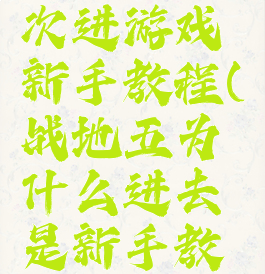 次进游戏
新手教程(
战地五为
什么进去
是新手教